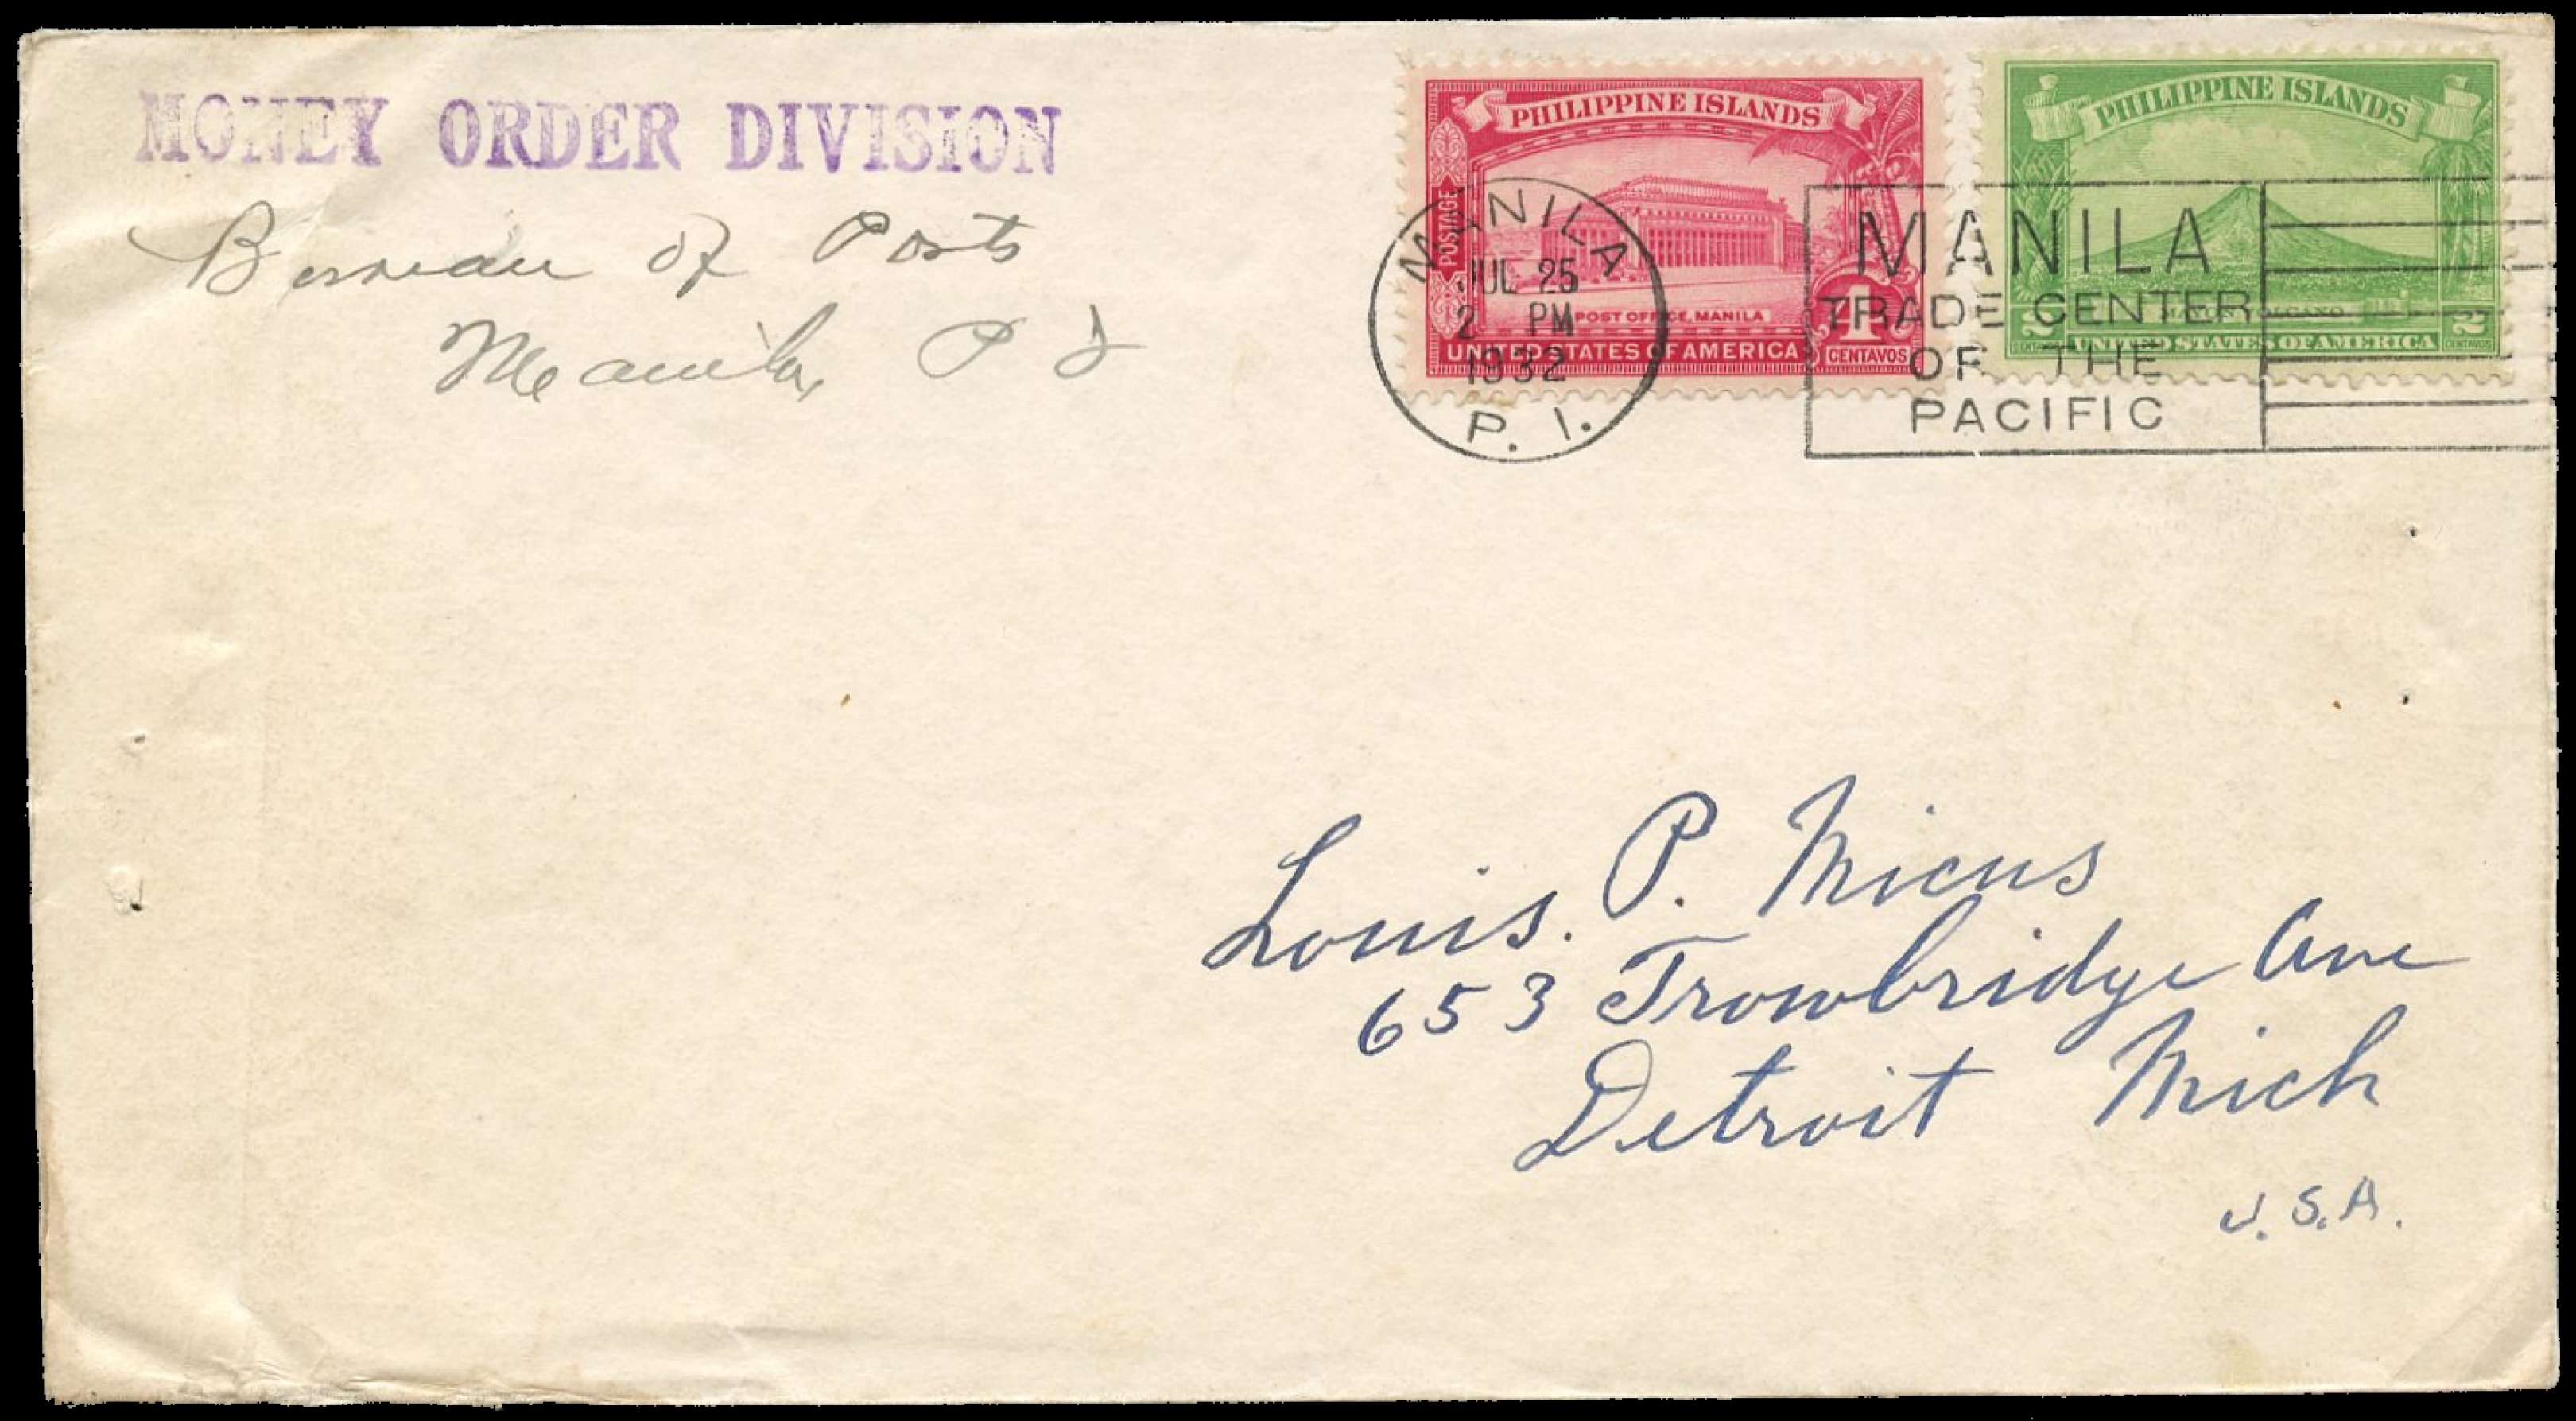 MONEY ORDER DIVISION
Bureau of Posts
Manila, P I
PHILIPPINE ISLANDS
POSTAGE
POST OFFICE, MANILA
4
UNITED STATES OF AMERICA
CENTAVOS
PHILIPPINE ISLANDS
MAYON VOLCANO
2 2
CENTAVOS UNITED STATES OF AMERICA CENTAVOS
MANILA
JUL 25
2 PM
1932
P. I.
MANILA
TRADE CENTER
OF THE
PACIFIC
Louis. P. Micus
653 Trowbridge Ave
Detroit Mich
U.S.A.